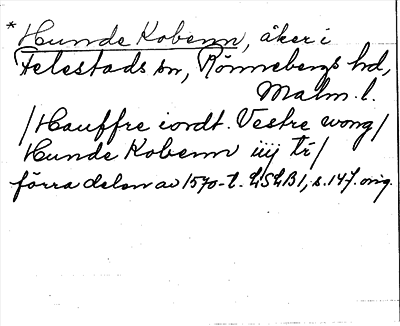 * Hunde Kobenn, åker i
Felestads sn, Rönnebergs hd,
Malm. l.
/Hauffre iordt. Vestre wong/
Hunde Kobenn iiij tr/
förra delen av 1570-t. LSLB1, s. 147. orig.